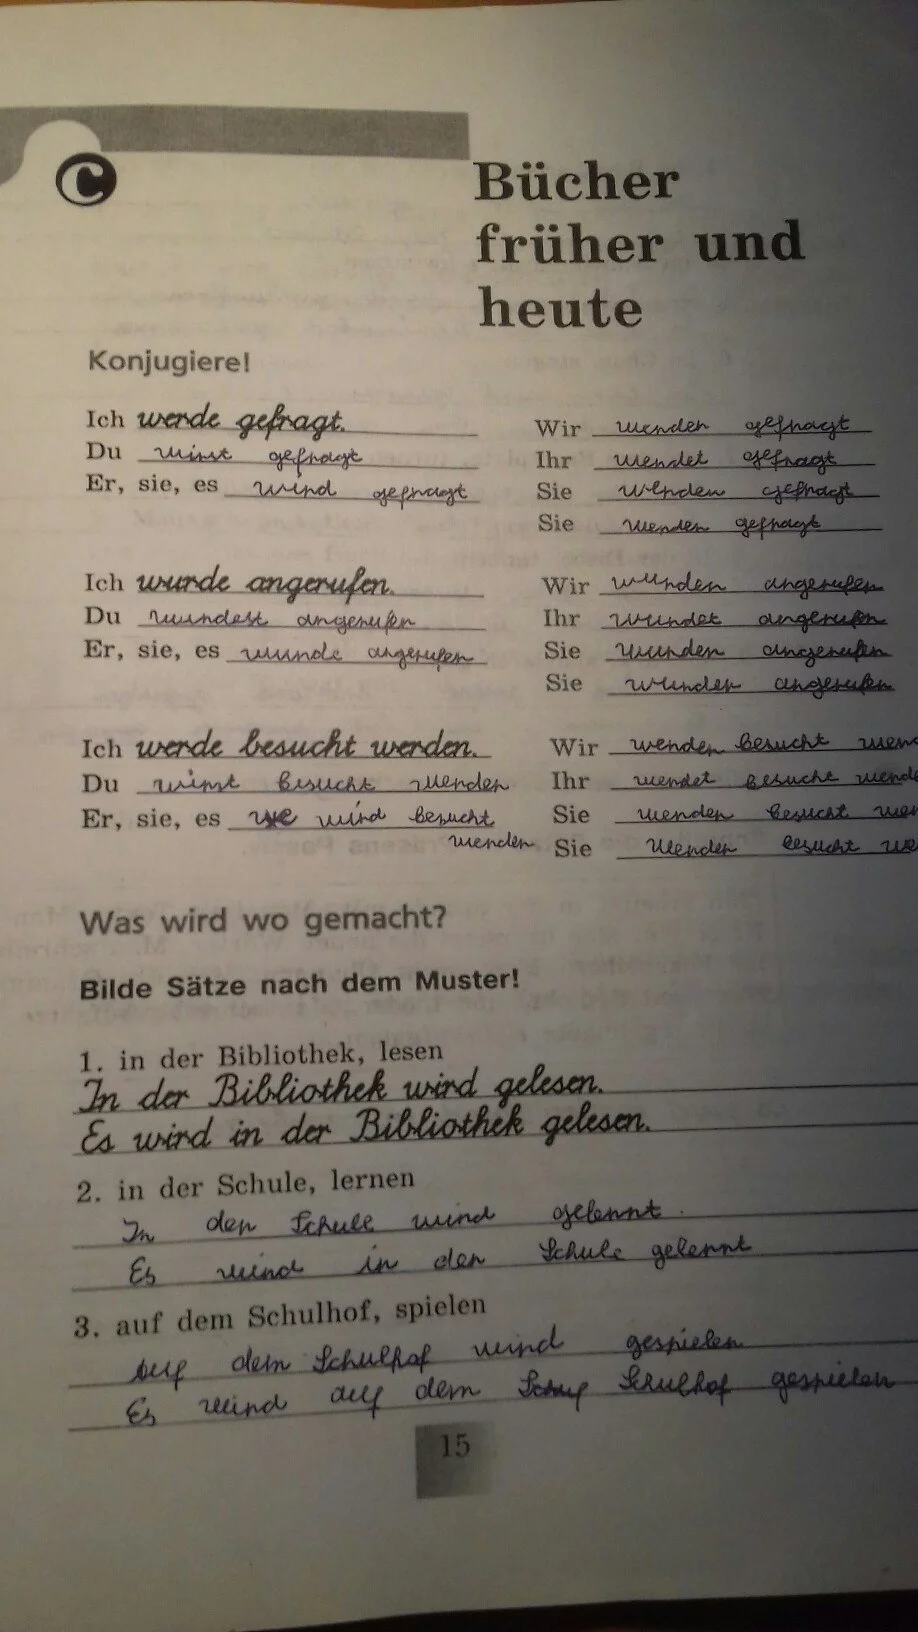 C
Bücher
früher und
heute
Konjugiere!
Ich werde gefragt.
Du wirst gefragt
Er, sie, es wird gefragt
Wir werden gefragt
Ihr werdet gefragt
Sie werden gefragt
Sie werden gefragt
Ich wurde angerufen.
Du wurdest angerufen
Er, sie, es wurde angerufen
Wir wurden angerufen
Ihr wurdet angerufen
Sie wurden angerufen
Sie wurden angerufen
Ich werde besucht werden.
Du wirst besucht werden
Er, sie, es wird besucht
werden
Wir werden besucht
Ihr werdet besucht
Sie werden besucht
Sie werden besucht
Was wird wo gemacht?
Bilde Sätze nach dem Muster!
1. in der Bibliothek, lesen
In der Bibliothek wird gelesen.
Es wird in der Bibliothek gelesen.
2. in der Schule, lernen
In der Schule wird gelernt.
Es wird in der Schule gelernt
3. auf dem Schulhof, spielen
Auf dem Schulhof wird gespielen
Es wird auf dem Schulhof gespielen
15